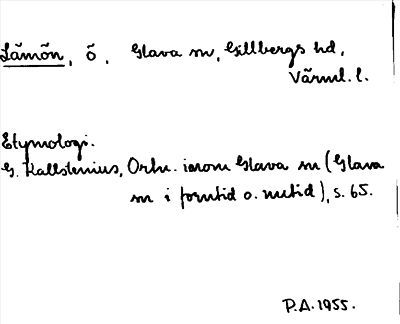 Låmön, ö, Glava sn, Gillbergs hd,
Värml. l.
Etymologi.
G. Kallstenius, Ortn. inom Glava sn (Glava
sn i forntid o. nutid), s. 65.
P.A. 1955.